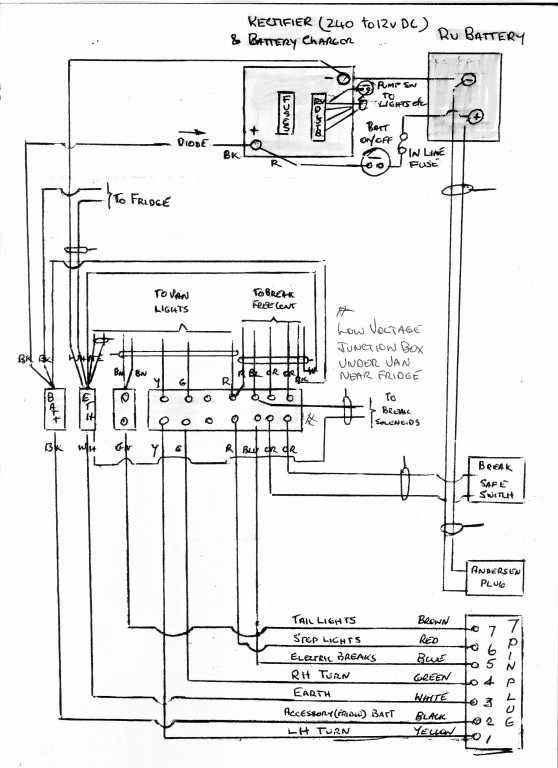 RECTIFIER (240 to 12v DC)
& BATTERY CHARGOR
RV BATTERY
-
-
+
FUSES
PUMP SW
TO
LIGHTS etc
BATT
ON/OFF
IN LINE
FUSE
DIODE
+
BK
R
TO FRIDGE
TO VAN
LIGHTS
TO BREAK
FREE CONT
#
LOW VOLTAGE
JUNCTION BOX
UNDER VAN
NEAR FRIDGE
BK
BK
WHITE
BN
BN
Y
G
R
R
BL
OR
OR
BK
W
BAT+
ETH
TO
BREAK
SOLENOIDS
#
BK
WH
BN
Y
G
R
BLU
OR
OR
BREAK
SAFE
SWITCH
ANDERSEN
PLUG
TAIL LIGHTS BROWN 7
STOP LIGHTS RED 6
ELECTRIC BREAKS BLUE 5
RH TURN GREEN 4
EARTH WHITE 3
ACCESSORY (FRIDGE) BATT BLACK 2
LH TURN YELLOW 1
7 PIN PLUG